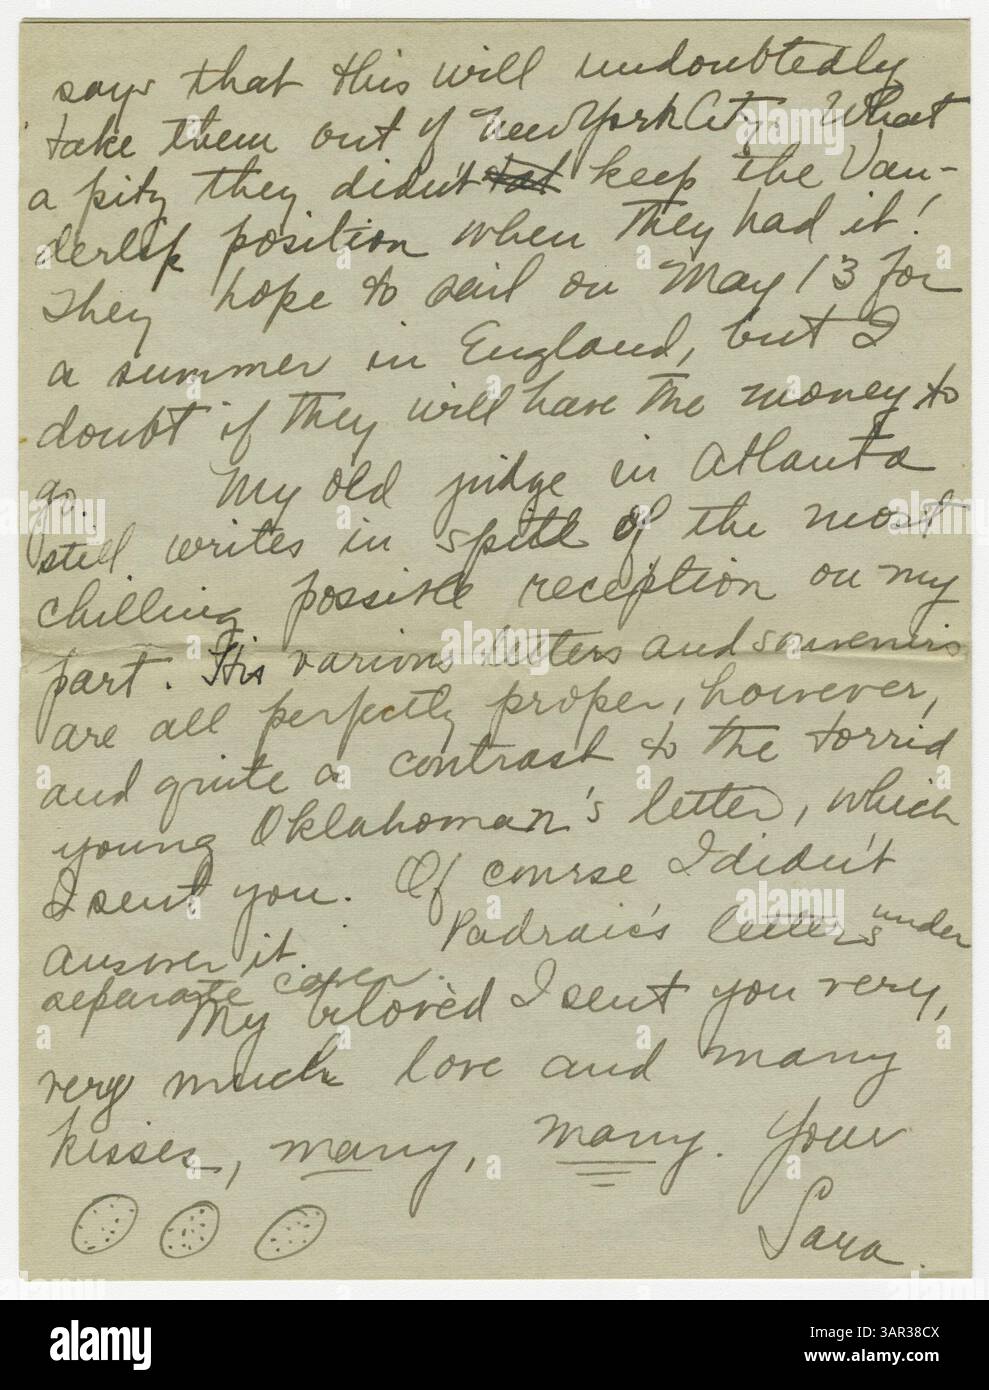 says that this will undoubtedly
take them out of New York City. What
a pity they didn't keep the Van-
derlip position when they had it!
They hope to sail on May 13 for
a summer in England, but I
doubt if they will have the money to
go. My old judge in Atlanta
still writes in spite of the most
chilling possible reception on my
part. His various letters and souvenirs
are all perfectly proper, however,
and quite a contrast to the torrid
young Oklahoman's letter, which
I sent you. Of course I didn't
answer it. Padraic's letters under
separate cover.
My beloved I sent you very,
very much love and many
kisses, many, many. Your
Sara.
alamy
Image ID: 3AR38CX
www.alamy.com